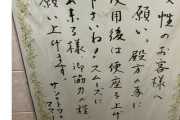 女性のお客様へ
お願い、殿方の為に
使用後は便座を上げ
下さいね!スムーズに
出来る様御協力の程
お願い上げます。